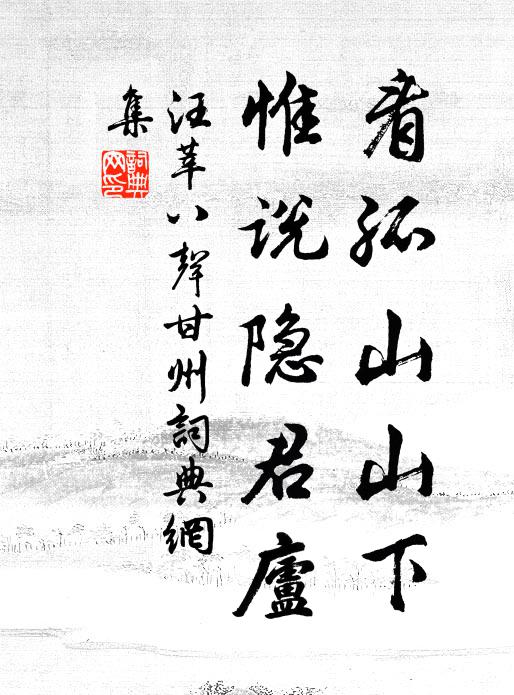 看孤山山下
惟说隐君廬
汪莘八聲甘州詞典網
集
詞典网印